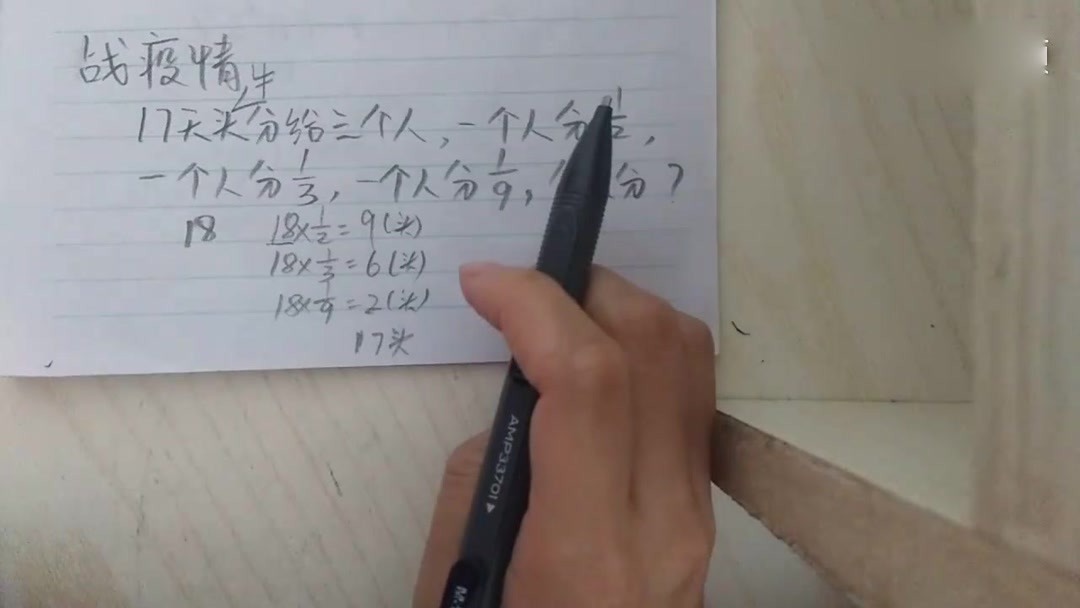 战疫情
17头牛分给三个人，一个人分1/2，
一个人分1/3，一个人分1/9，分？
18 18×1/2=9(头)
18×1/3=6(头)
18×1/9=2(头)
17头
AMP33701